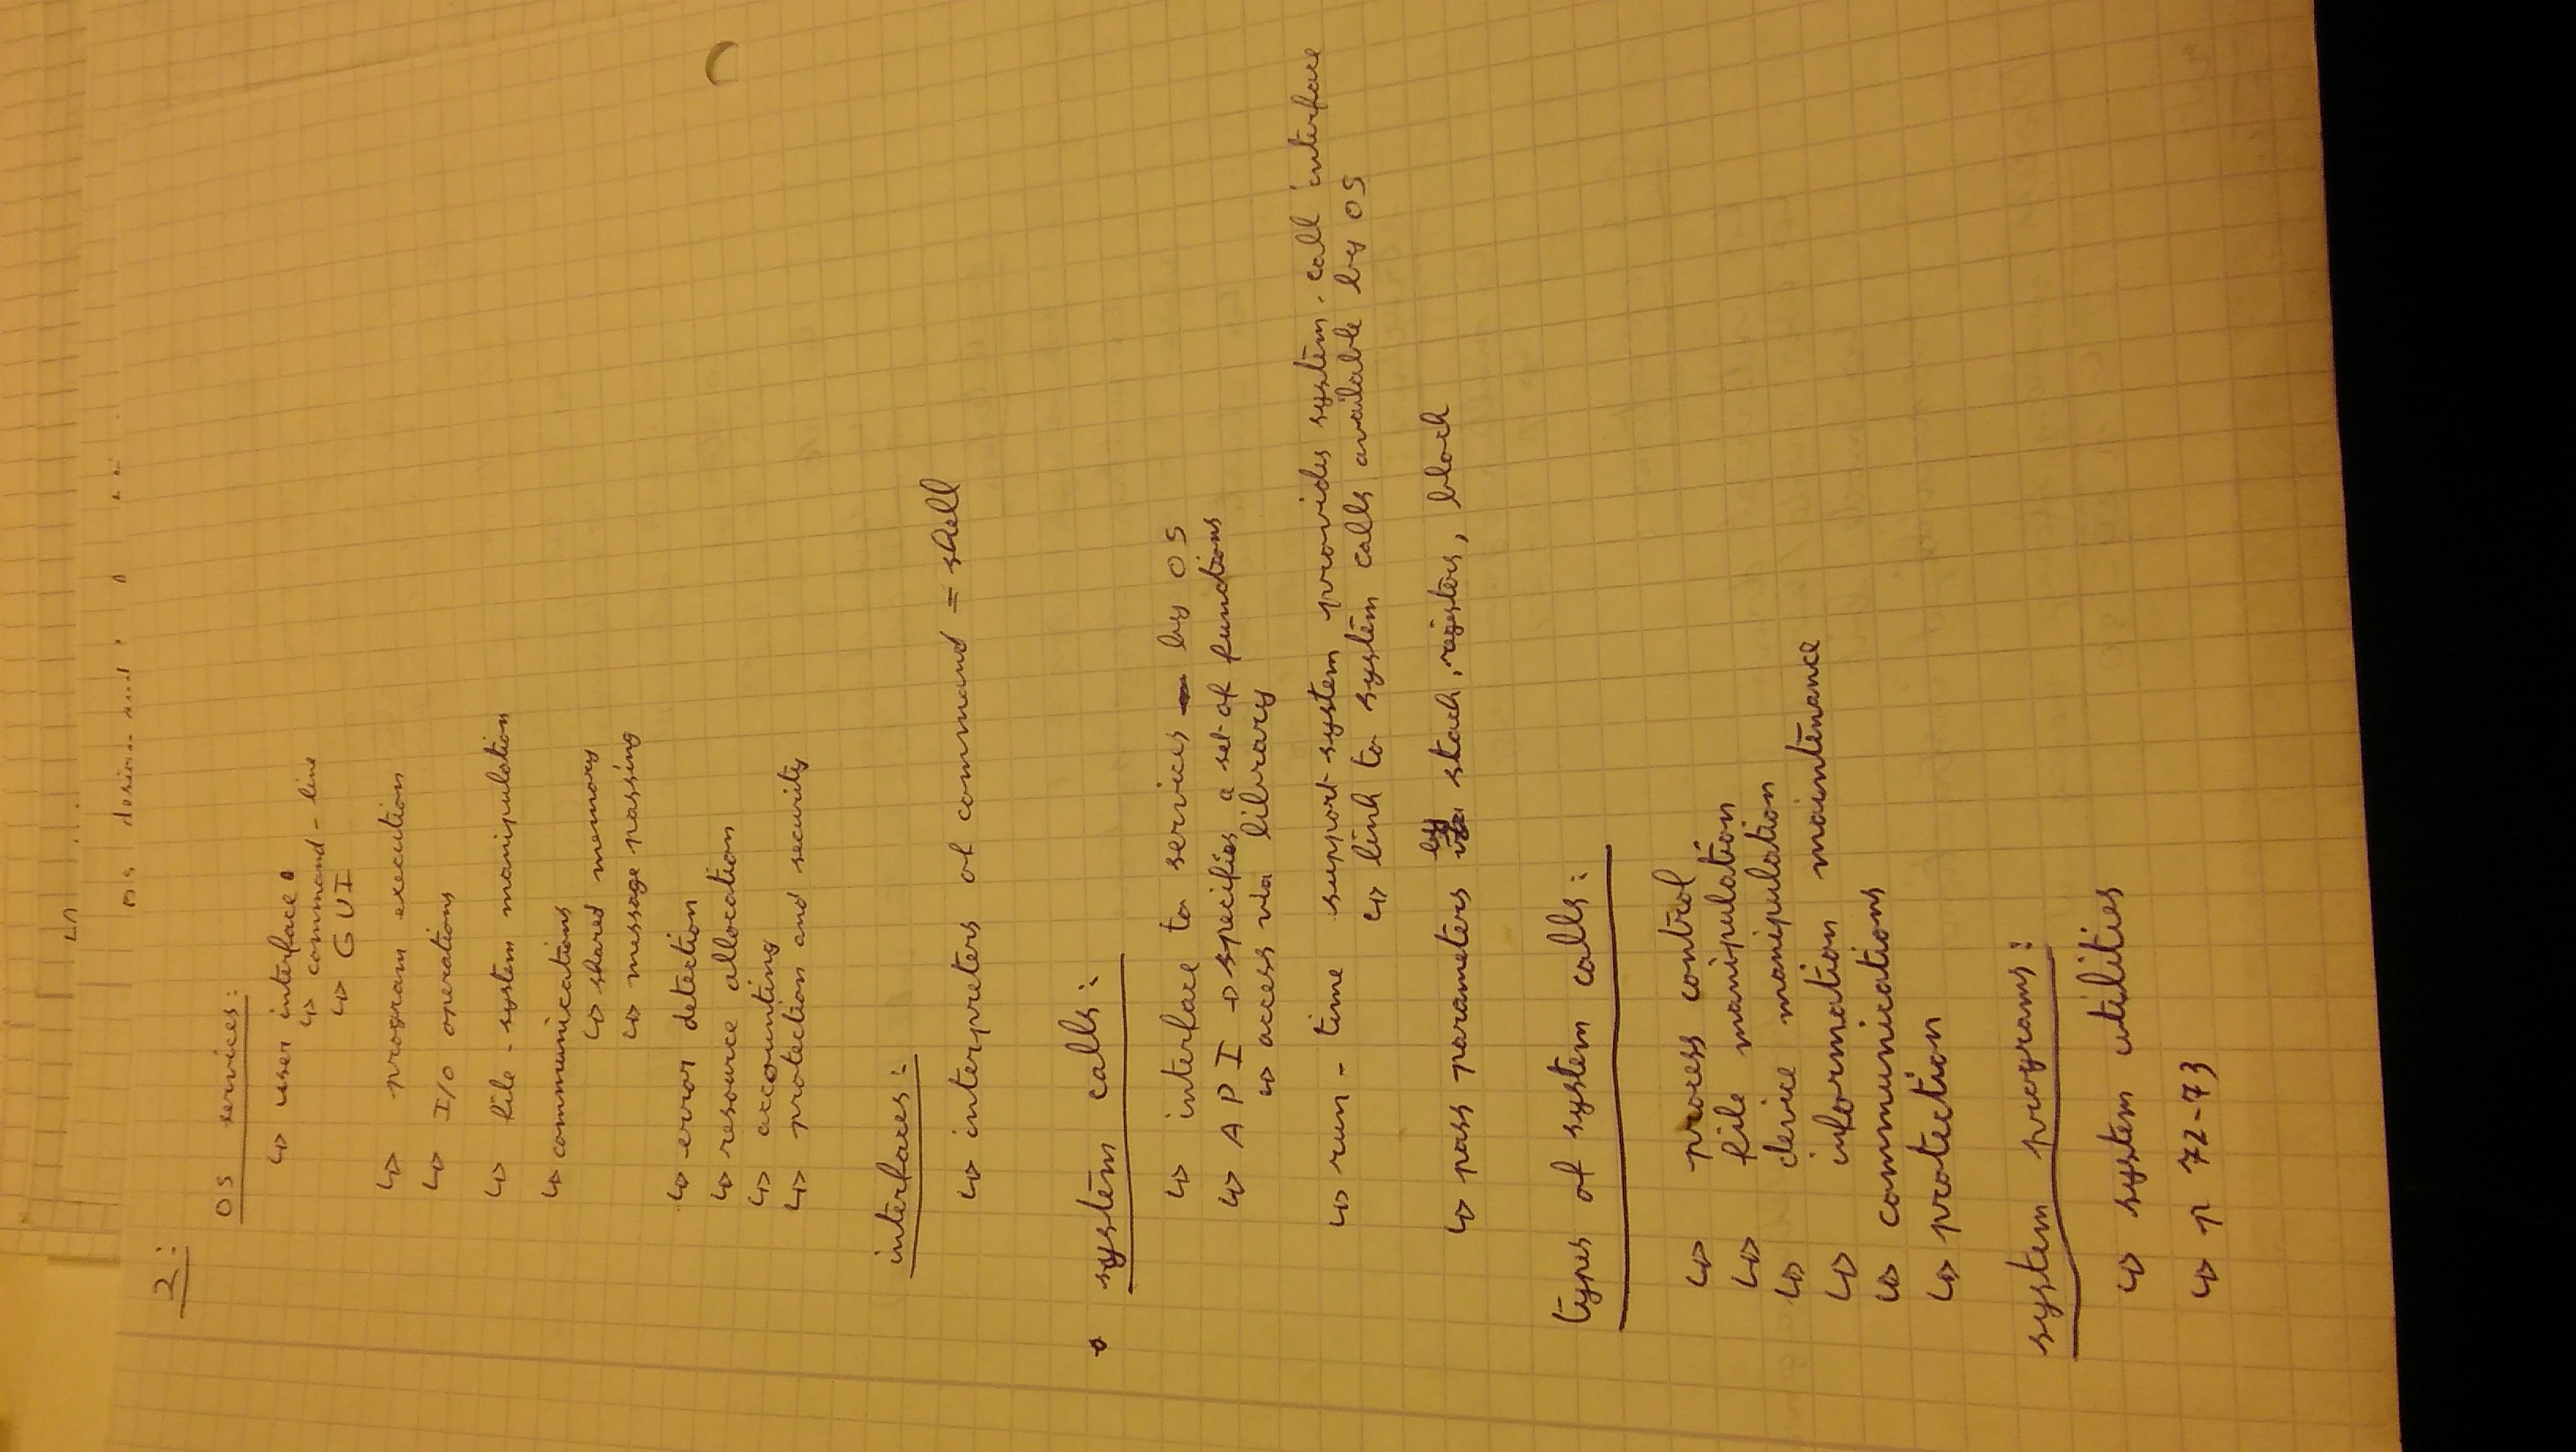 design and
2:
OS services:
↳ user interface
↳ command-line
↳ GUI
↳ program execution
↳ I/O operations
↳ file-system manipulation
↳ communications
↳ shared memory
↳ message passing
↳ error detection
↳ resource allocation
↳ accounting
↳ protection and security
interfaces:
↳ interpreters of command = shell
• system calls:
↳ interface to services by OS
↳ API → specifies a set of functions
↳ access via library
↳ run-time support system provides system-call interface
↳ link to system calls available by OS
↳ pass parameters by stack, registers, block
types of system calls:
↳ process control
↳ file manipulation
↳ device manipulation
↳ information maintenance
↳ communications
↳ protection
system programs:
↳ system utilities
↳ p 72-73